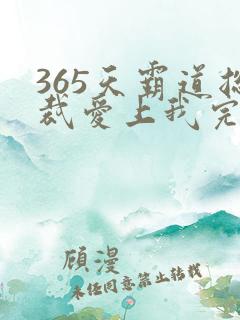 365天霸道总
裁爱上我完
顾漫
未经同意禁止转载